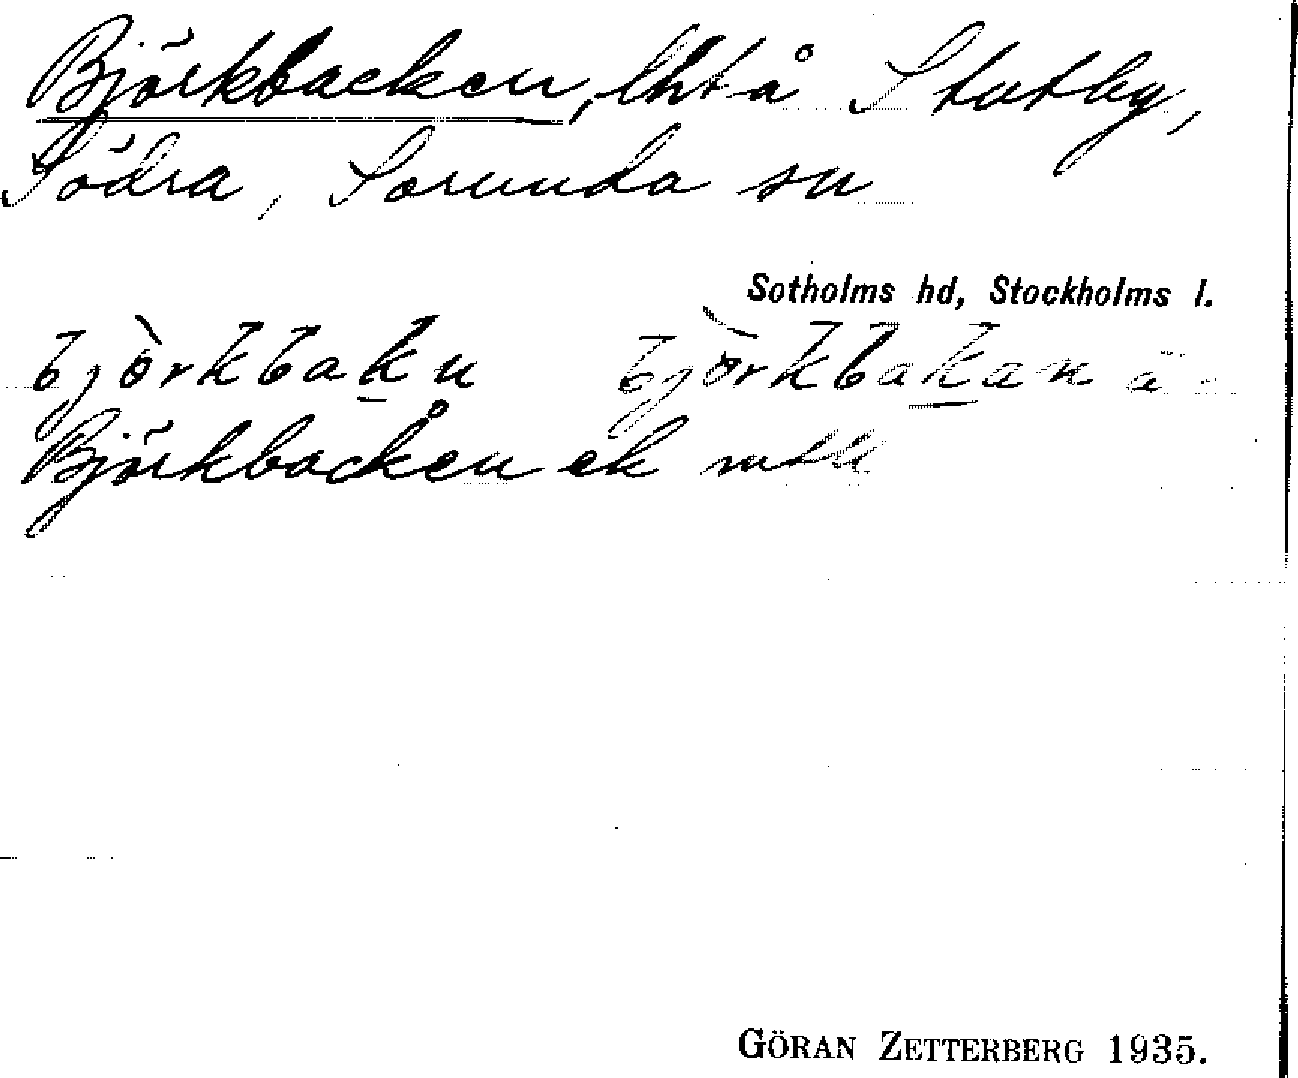 Björkbacken, lht å Stutby,
Södra, Sorunda sn
Sotholms hd, Stockholms l.
bjòrkbakn bjòrkbakan ä
Björkbacken ek
GÖRAN ZETTERBERG 1935.